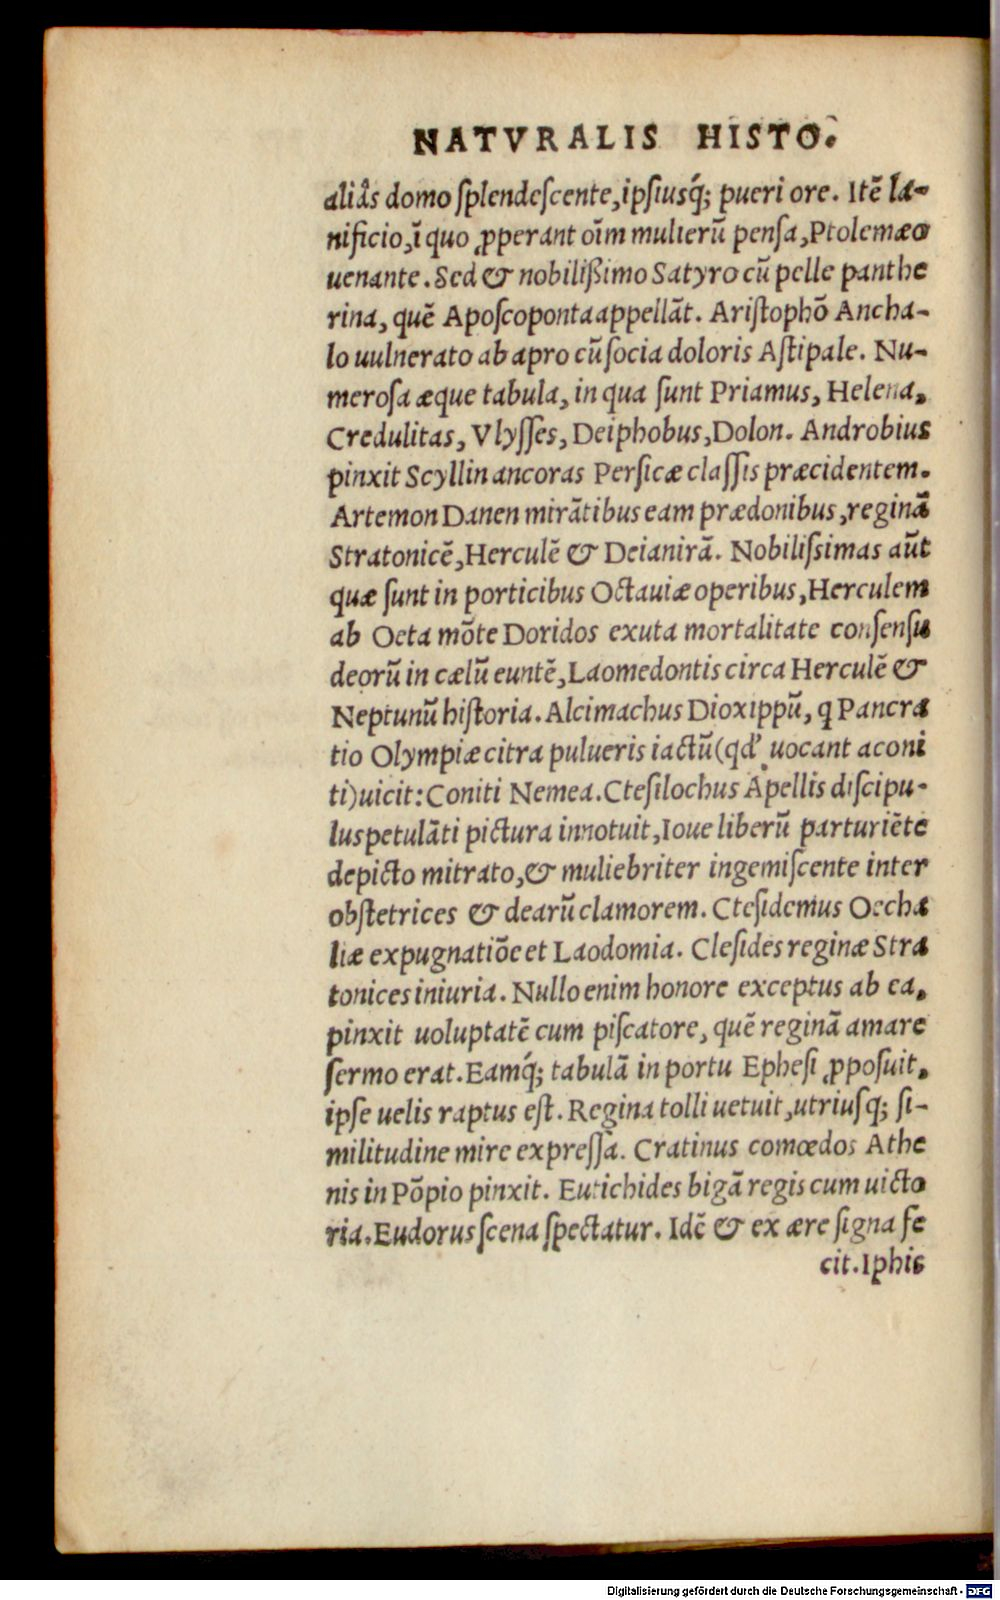 NATVRALIS HISTO.
aliâs domo ſplendeſcente, ipſiusq́; pueri ore. Itẽ la-
nificio, ĩ quo ꝓperant oĩm mulierũ penſa, Ptolemæo
uenante. Sed & nobilißimo Satyro cũ pelle panthe
rina, quẽ Apoſcoponta appellãt. Ariſtophõ Ancha-
lo uulnerato ab apro cũ ſocia doloris Aſtipale. Nu-
meroſa æque tabula, in qua ſunt Priamus, Helena,
Credulitas, Vlyſſes, Deiphobus, Dolon. Androbius
pinxit Scyllin ancoras Perſicæ claſſis præcidentem.
Artemon Danen mirãtibus eam prædonibus, reginã
Stratonicẽ, Herculẽ & Deianirã. Nobiliſsimas aũt
quæ ſunt in porticibus Octauiæ operibus, Herculem
ab Oeta mõte Doridos exuta mortalitate conſenſu
deorũ in cælũ euntẽ, Laomedontis circa Herculẽ &
Neptunũ hiſtoria. Alcimachus Dioxippũ, q Pancra
tio Olympiæ citra pulueris iactũ (qd’ uocant aconi
ti) uicit: Coniti Nemea. Cteſilochus Apellis diſcipu-
lus petulãti pictura innotuit, Ioue liberũ parturiẽte
depicto mitrato, & muliebriter ingemiſcente inter
obſtetrices & dearũ clamorem. Cteſidemus Oecha
liæ expugnatiõe et Laodomia. Cleſides reginæ Stra
tonices iniuria. Nullo enim honore exceptus ab ea,
pinxit uoluptatẽ cum piſcatore, quẽ reginã amare
ſermo erat. Eamq́; tabulã in portu Epheſi ꝓpoſuit,
ipſe uelis raptus eſt. Regina tolli uetuit, utriuſq; ſi-
militudine mire expreſſa. Cratinus comœdos Athe
nis in Põpio pinxit. Eutichides bigã regis cum uicto
ria. Eudorus ſcena ſpectatur. Idẽ & ex ære ſigna fe
cit. Iphis
Digitalisierung gefördert durch die Deutsche Forschungsgemeinschaft - DFG